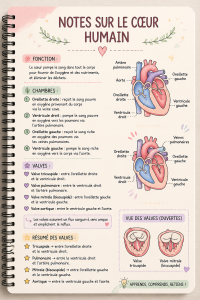 NOTES SUR LE CŒUR
HUMAIN
FONCTION
Le cœur pompe le sang dans tout le corps
pour fournir de l'oxygène et des nutriments,
et éliminer les déchets.
CHAMBRES
Oreillette droite: reçoit le sang pauvre
en oxygène provenant du corps
via la veine cave.
Ventricule droit: pompe le sang pauvre
en oxygène vers les poumons via
l'artère pulmonaire.
Oreillette gauche: reçoit le sang riche
en oxygène des poumons via
les veines pulmonaires.
Ventricule gauche: pompe le sang riche
en oxygène vers le corps via l'aorte.
VALVES
Valve tricuspide – entre l'oreillette droite
et le ventricule droit.
Valve pulmonaire – entre le ventricule droit
et l'artère pulmonaire.
Valve mitrale (bicuspide) – entre l'oreillette gauche
et le ventricule gauche.
Valve aortique – entre le ventricule gauche et l'aorte.
Les valves assurent un flux sanguin à sens unique
et empêchent le reflux.
RÉSUMÉ DES VALVES
Tricuspide → entre l'oreillette droite
et le ventricule droit.
Pulmonaire → entre le ventricule droit
et l'artère pulmonaire.
Mitrale (bicuspide) → entre l'oreillette gauche
et le ventricule gauche.
Aortique → entre le ventricule gauche et l'aorte.
Artère
pulmonaire
Aorte
Oreillette
droite
Ventricule
droit
Oreillette
gauche
Ventricule
gauche
Veines
pulmonaires
Oreillette
gauche
Ventricule
gauche
VUE DES VALVES (OUVERTES)
Valve
tricuspide
Valve
mitrale
APPRENDS, COMPRENDS, RETIENS !